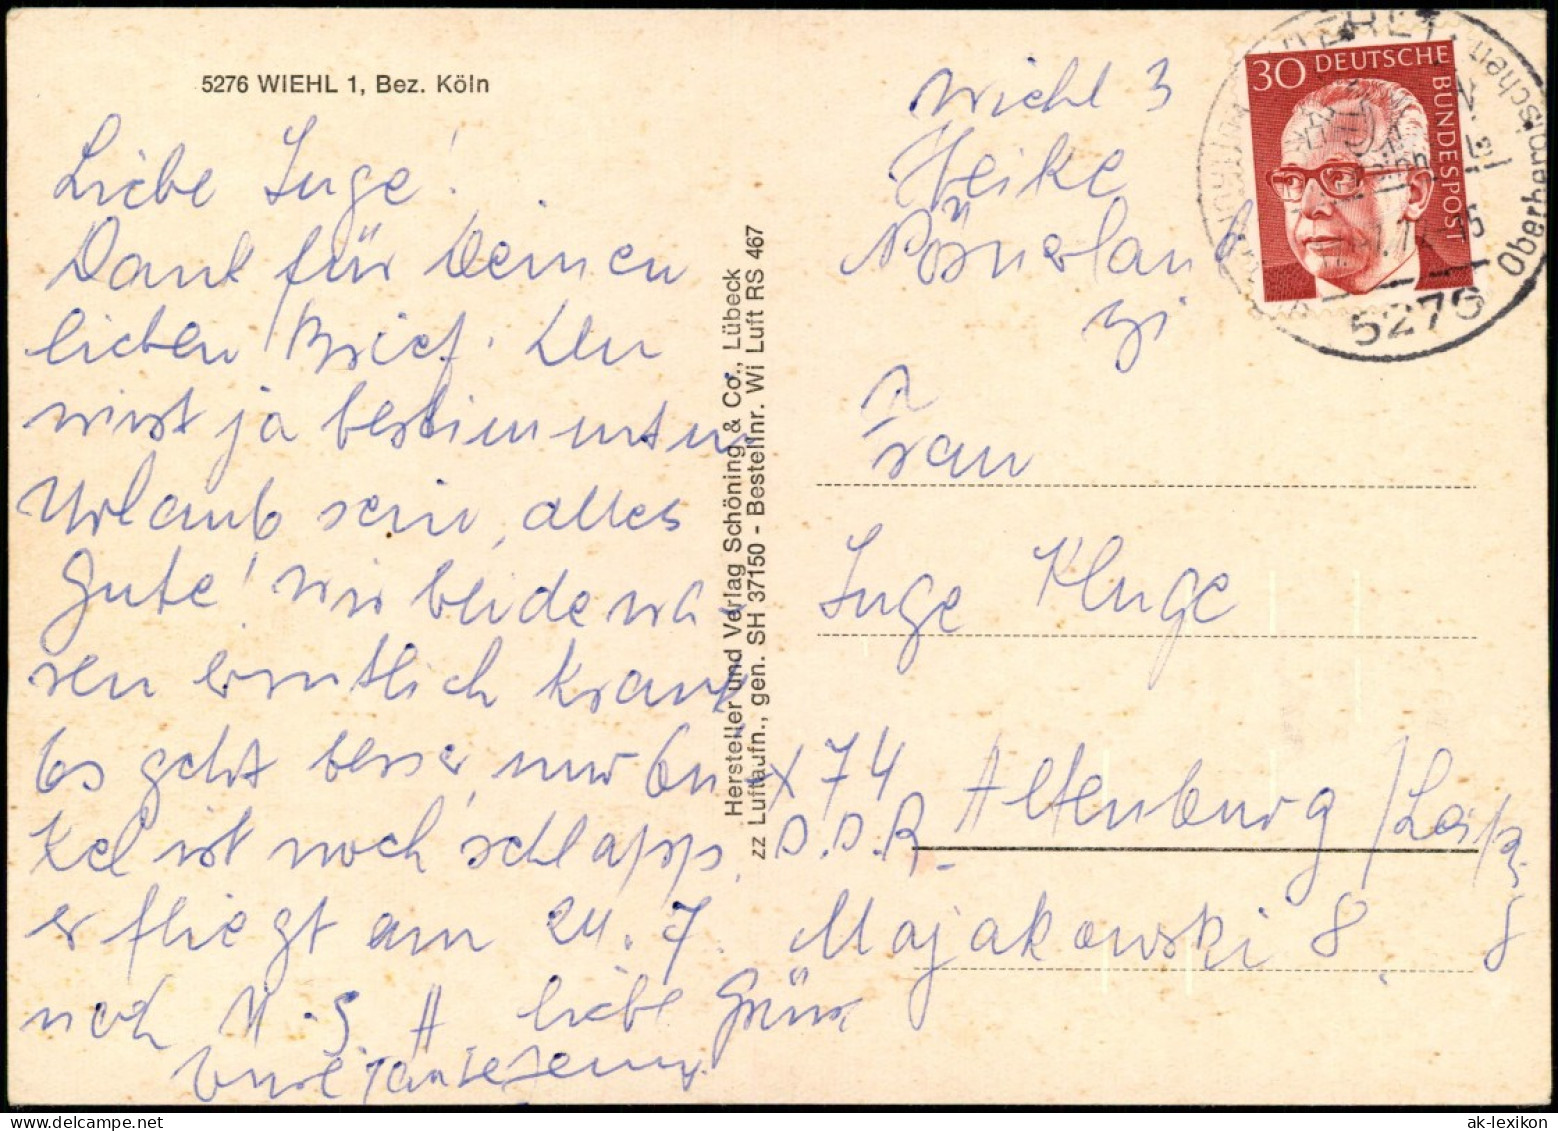 5276 WIEHL 1, Bez. Köln
Liebe Inge!
Dank für Deinen
lieben Brief. Du
wirst ja bestimmt im
Urlaub sein, alles
Gute! Wir beide wa-
ren ernstlich krank
Es geht besser, nur On-
kel ist noch schlapp,
er fliegt am 24. 7.
nach U.S.A liebe Grüsse
Hersteller und Verlag Schöning & Co., Lübeck
zz Luftaufn., gen. SH 37150 - Bestellnr. Wi Luft RS 467
Wiehl 3
Heike
30 DEUTSCHE BUNDESPOST
5276
Oberbergischen
Frau
Inge Kluge
X 74 Altenburg / Leipz.
D.D.R.
Majakowski 8